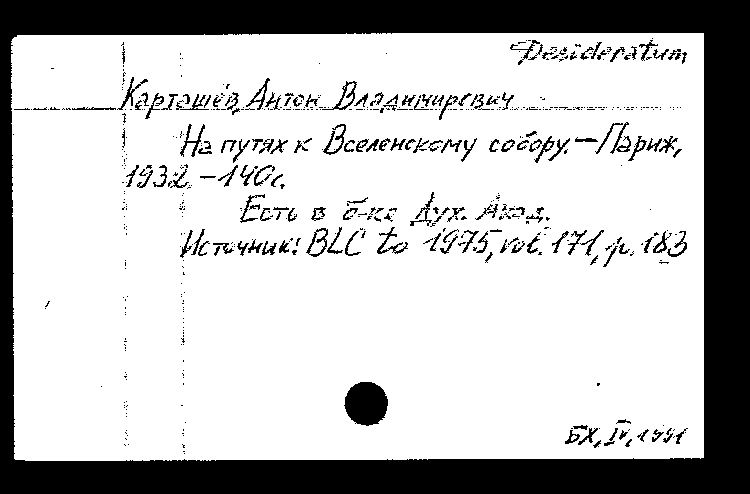 Desideratum
Карташёв, Антон Владимирович
На путях к Вселенскому собору. — Париж,
1932. — 140 с.
Есть в б-ке Дух. Акад.
Источник: BLC to 1975, vol. 171, p. 183
БХ, IV, 1991